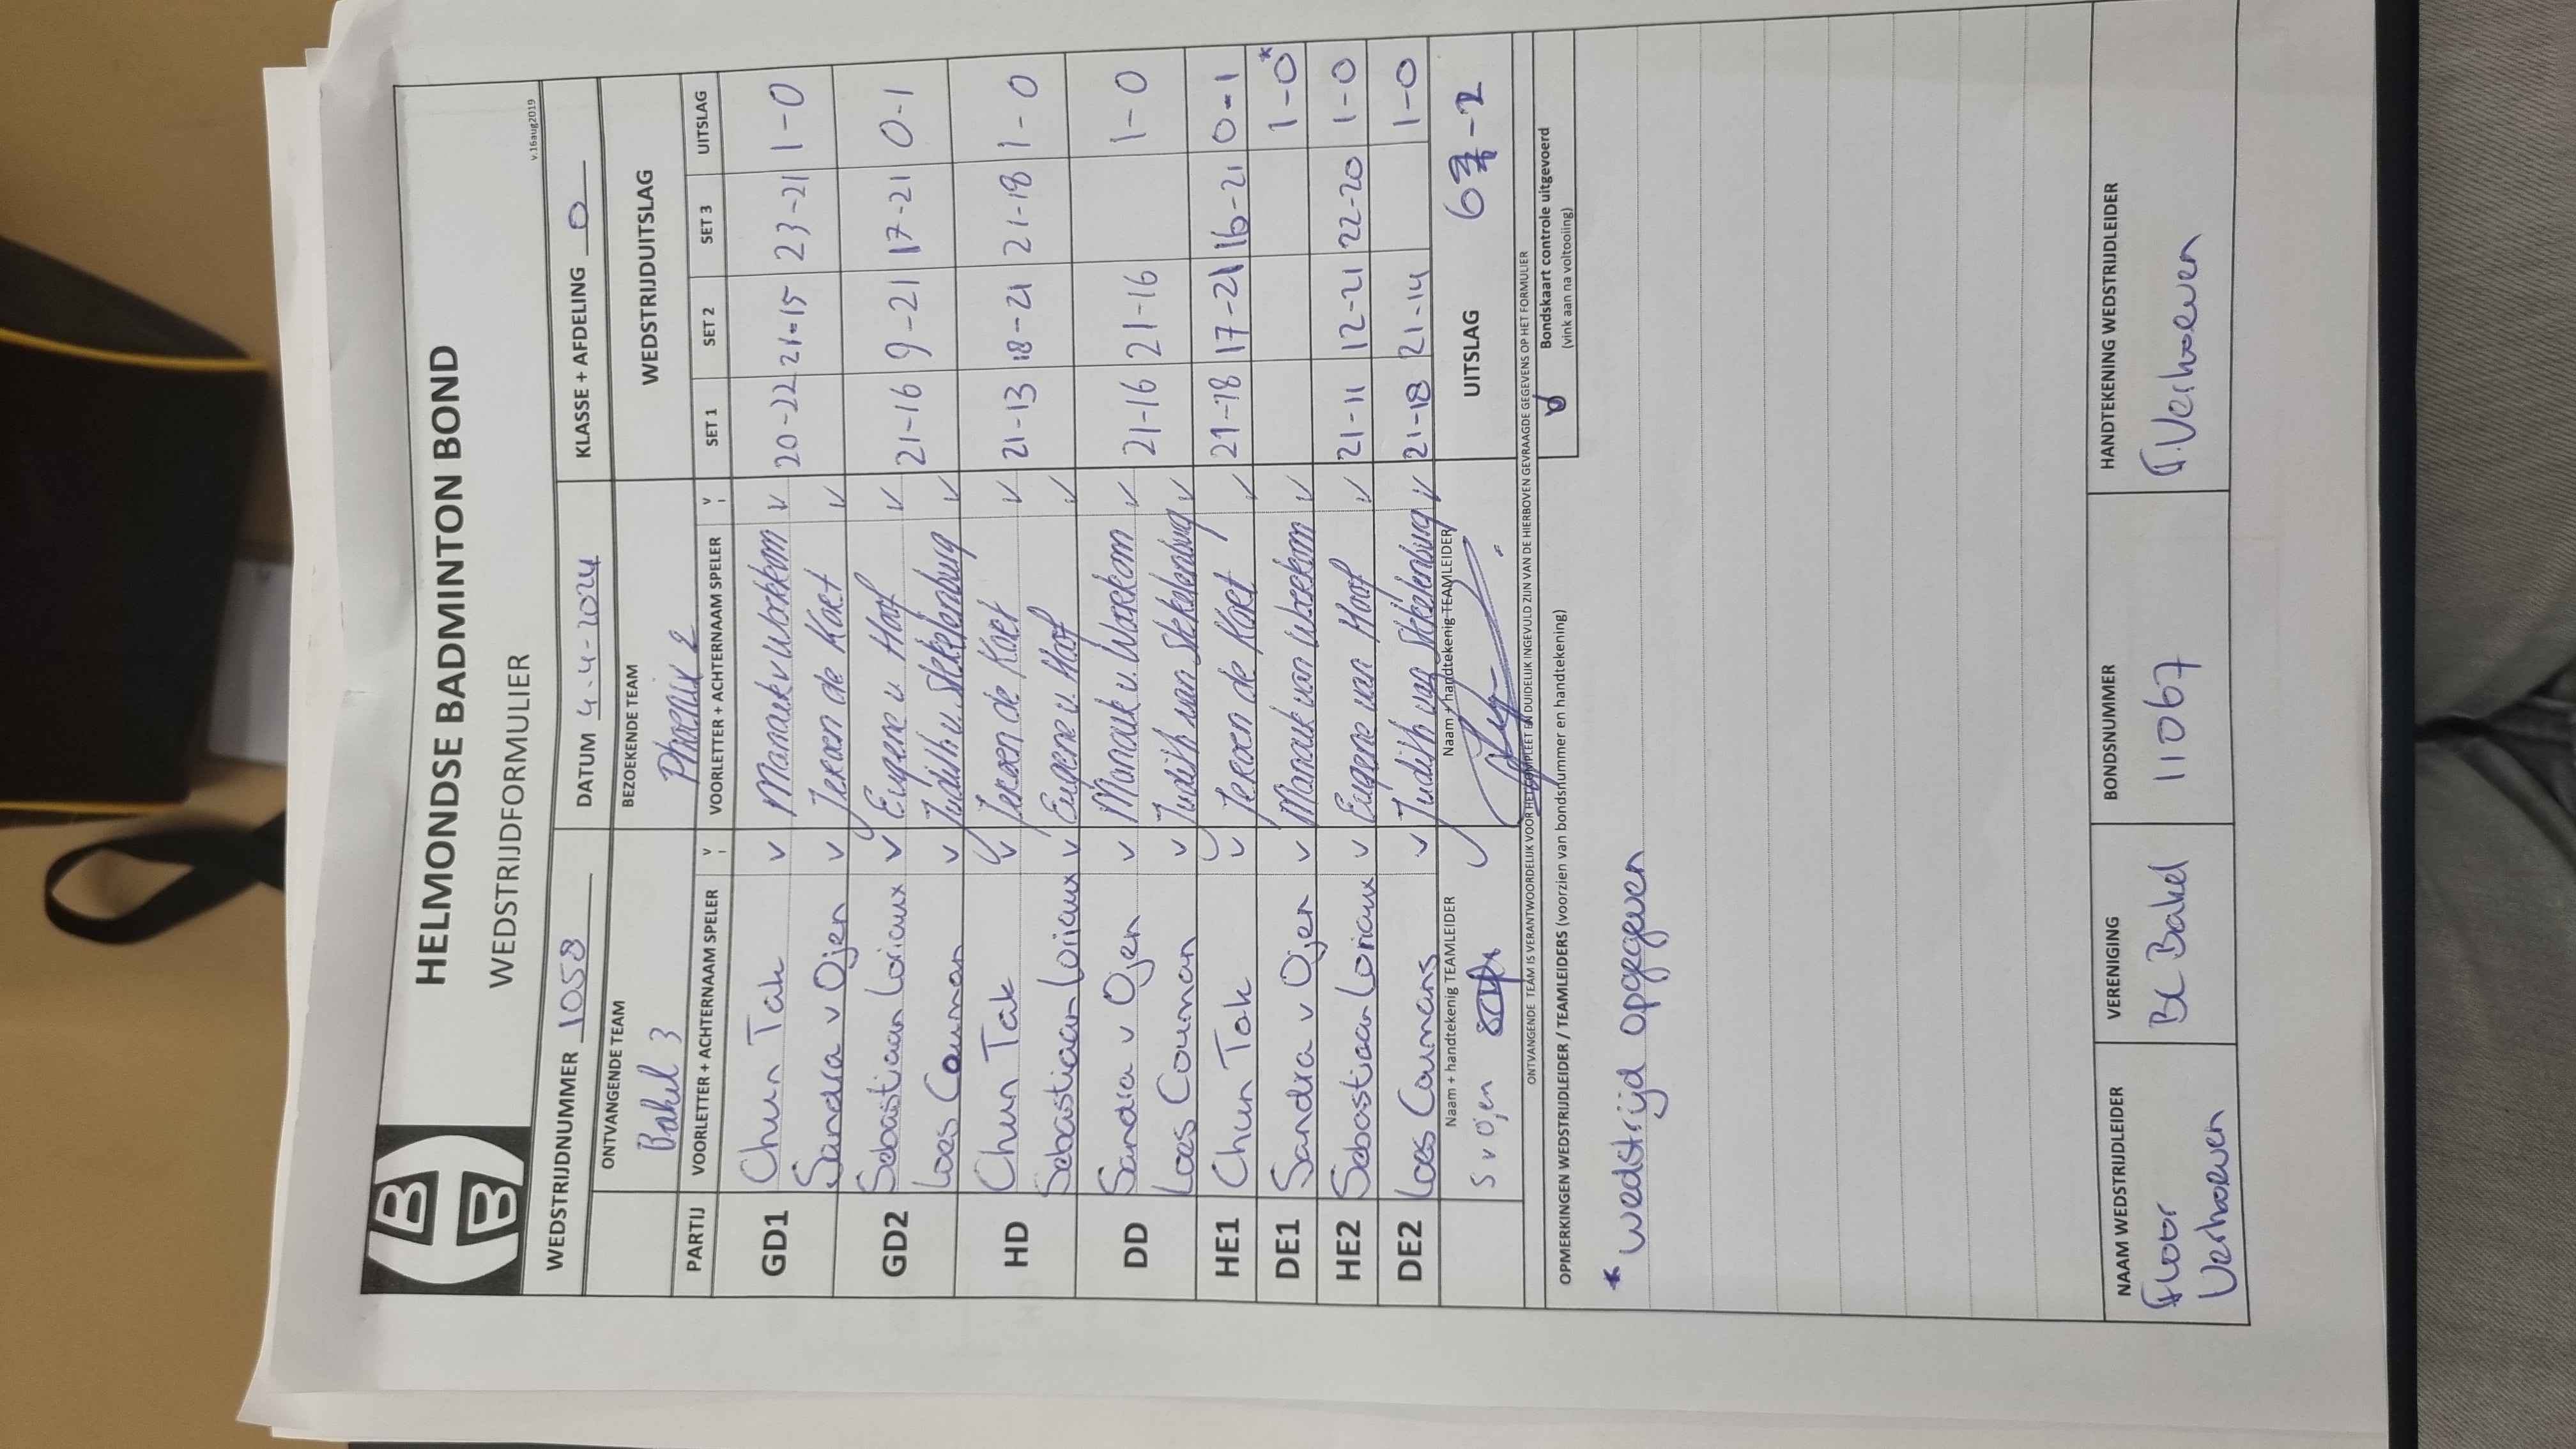 HELMONDSE BADMINTON BOND
WEDSTRIJDFORMULIER
v.16aug2019
WEDSTRIJDNUMMER 1058 DATUM 4-4-2024 KLASSE + AFDELING 0
ONTVANGENDE TEAM BEZOEKENDE TEAM WEDSTRIJDUITSLAG
Bakel 3 Phoenix 2
PARTIJ VOORLETTER + ACHTERNAAM SPELER V VOORLETTER + ACHTERNAAM SPELER V SET 1 SET 2 SET 3 UITSLAG
GD1 Chun Tak v Manaek v Workkom v 20-22 21-15 23-21 1-0
Sandra v Ojen v Jeroen de Koet v
GD2 Sebastiaan Loriaux v Eugene v Hoof v 21-16 9-21 17-21 0-1
Loes Couman v Judith v. Stekelenburg v
HD Chun Tak v Jeroen de Koet v 21-13 18-21 21-18 1-0
Sebastiaan Loriaux v Eugene v. Hoof v
DD Sandra v Ojen v v. v 21-16 21-16 1-0
Loes Couman v Judith van Stekelenburg v
HE1 Chun Tak v Jeroen de Koet v 21-18 17-21 16-21 0-1
DE1 Sandra v Ojen v van v 1-0*
HE2 Sebastiaan Loriaux v Eugene van Hoof v 21-11 12-21 22-20 1-0
DE2 Loes Coumans v Judith van Stekelenburg v 21-18 21-14 1-0
Naam + handtekenig TEAMLEIDER Naam + handtekenig TEAMLEIDER UITSLAG 6-2
S v Ojen
ONTVANGENDE TEAM IS VERANTWOORDELIJK VOOR HET COMPLEET EN DUIDELIJK INGEVULD ZIJN VAN DE HIERBOVEN GEVRAAGDE GEGEVENS OP HET FORMULIER
OPMERKINGEN WEDSTRIJDLEIDER / TEAMLEIDERS (voorzien van bondsnummer en handtekening) Bondskaart controle uitgevoerd
(vink aan na voltooiing)
* wedstrijd opgegeven
NAAM WEDSTRIJDLEIDER VERENIGING BONDSNUMMER HANDTEKENING WEDSTRIJDLEIDER
Floor BC Bakel 11067 F.Verhoeven
Verhoeven